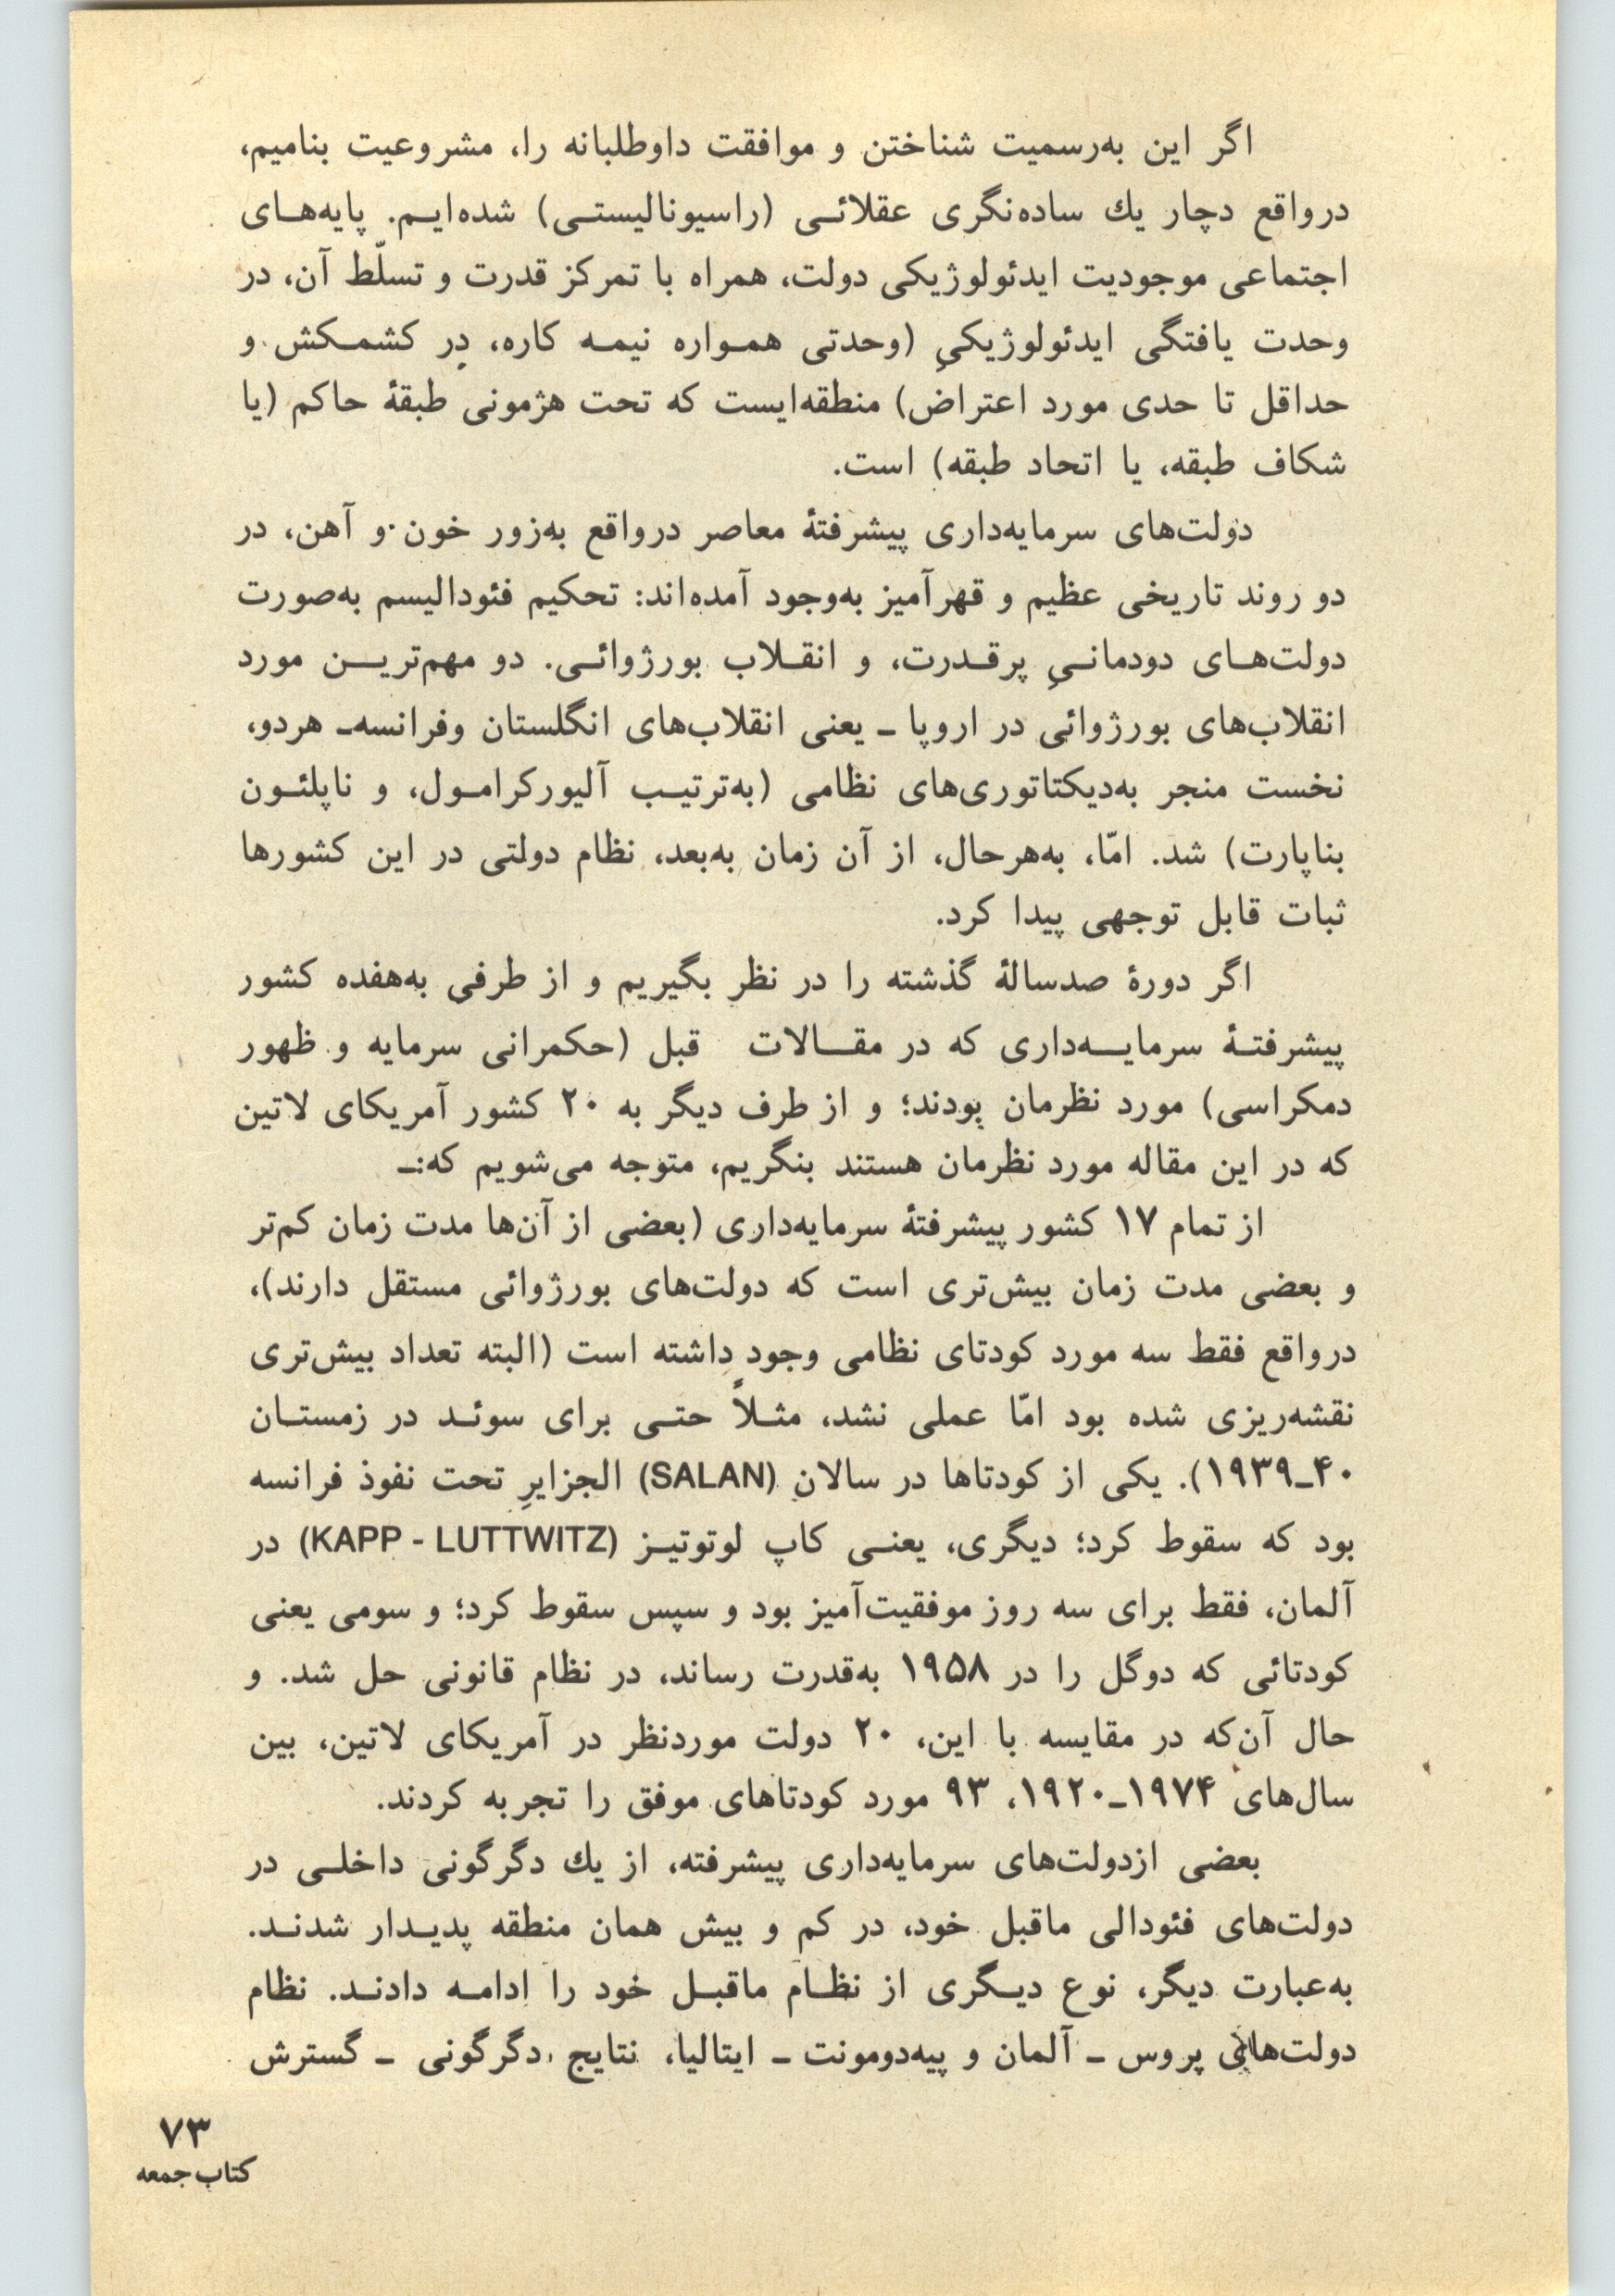 اگر این به‌رسمیت شناختن و موافقت داوطلبانه را، مشروعیت بنامیم،
درواقع دچار یك ساده‌نگری عقلائی (راسیونالیستی) شده‌ایم. پایه‌های
اجتماعی موجودیت ایدئولوژیکی دولت، همراه با تمرکز قدرت و تسلّط آن، در
وحدت یافتگی ایدئولوژیکیِ (وحدتی همواره نیمه کاره، درِ کشمکش و
حداقل تا حدی مورد اعتراض) منطقه‌ایست که تحت هژمونی طبقهٔ حاکم (یا
شکاف طبقه، یا اتحاد طبقه) است.
دولت‌های سرمایه‌داری پیشرفتهٔ معاصر درواقع به‌زور خون و آهن، در
دو روند تاریخی عظیم و قهرآمیز به‌وجود آمده‌اند: تحکیم فئودالیسم به‌صورت
دولت‌های دودمانیِ پرقدرت، و انقلاب بورژوائی. دو مهم‌ترین مورد
انقلاب‌های بورژوائی در اروپا ـ یعنی انقلاب‌های انگلستان وفرانسه‌ـ هردو،
نخست منجر به‌دیکتاتوری‌های نظامی (به‌ترتیب آلیورکرامول، و ناپلئون
بناپارت) شد. امّا، به‌هرحال، از آن زمان به‌بعد، نظام دولتی در این کشورها
ثبات قابل توجهی پیدا کرد.
اگر دورهٔ صدسالهٔ گذشته را در نظر بگیریم و از طرفی به‌هفده کشور
پیشرفتهٔ سرمایه‌داری که در مقالات قبل (حکمرانی سرمایه و ظهور
دمکراسی) مورد نظرمان بودند؛ و از طرف دیگر به ۲۰ کشور آمریکای لاتین
که در این مقاله مورد نظرمان هستند بنگریم، متوجه می‌شویم که:ـ
از تمام ۱۷ کشور پیشرفتهٔ سرمایه‌داری (بعضی از آن‌ها مدت زمان کم‌تر
و بعضی مدت زمان بیش‌تری است که دولت‌های بورژوائی مستقل دارند)،
درواقع فقط سه مورد کودتای نظامی وجود داشته است (البته تعداد بیش‌تری
نقشه‌ریزی شده بود امّا عملی نشد، مثلاً حتی برای سوئد در زمستان
۴۰ـ۱۹۳۹). یکی از کودتاها در سالان (SALAN) الجزایرِ تحت نفوذ فرانسه
بود که سقوط کرد؛ دیگری، یعنی کاپ لوتوتیز (KAPP - LUTTWITZ) در
آلمان، فقط برای سه روز موفقیت‌آمیز بود و سپس سقوط کرد؛ و سومی یعنی
کودتائی که دوگل را در ۱۹۵۸ به‌قدرت رساند، در نظام قانونی حل شد. و
حال آن‌که در مقایسه با این، ۲۰ دولت موردنظر در آمریکای لاتین، بین
سال‌های ۱۹۷۴ـ۱۹۲۰، ۹۳ مورد کودتاهای موفق را تجربه کردند.
بعضی ازدولت‌های سرمایه‌داری پیشرفته، از یك دگرگونی داخلی در
دولت‌های فئودالی ماقبل خود، در کم و بیش همان منطقه پدیدار شدند.
به‌عبارت دیگر، نوع دیگری از نظام ماقبل خود را ادامه دادند. نظام
دولت‌های پروس ـ آلمان و پیه‌دومونت ـ ایتالیا، نتایج دگرگونی ـ گسترش
۷۳
کتاب جمعه